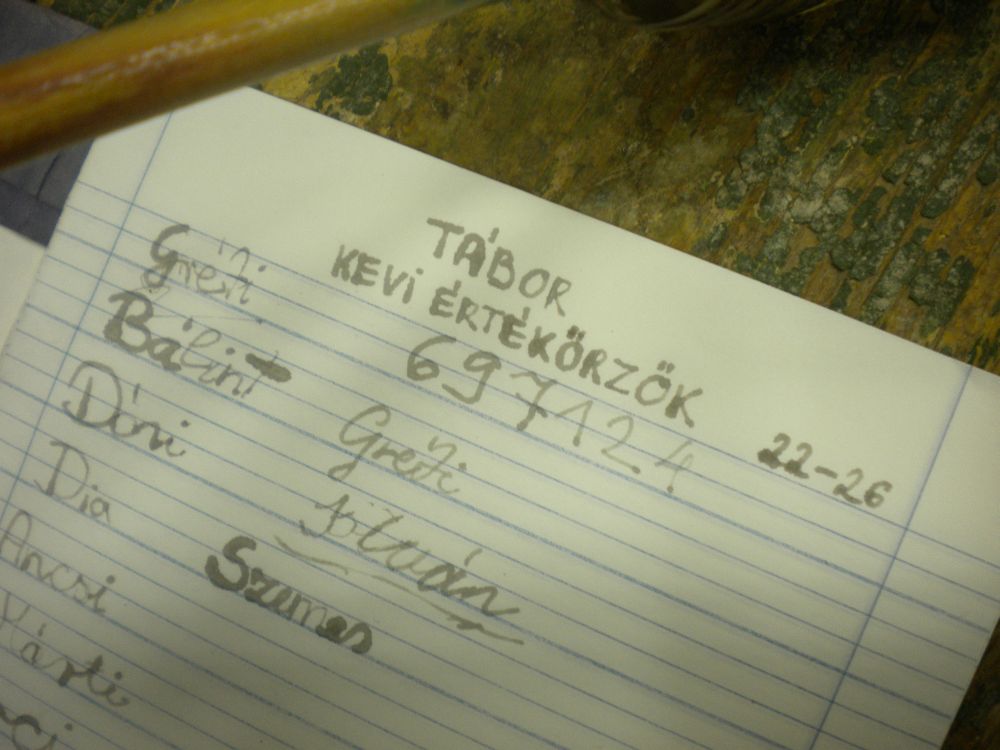 TÁBOR
KEVI ÉRTÉKŐRZŐK
697124 22-26
Gréti
Bálint
Dóri
Dia
Ancsi
Márti
Gréti
István
Szemes